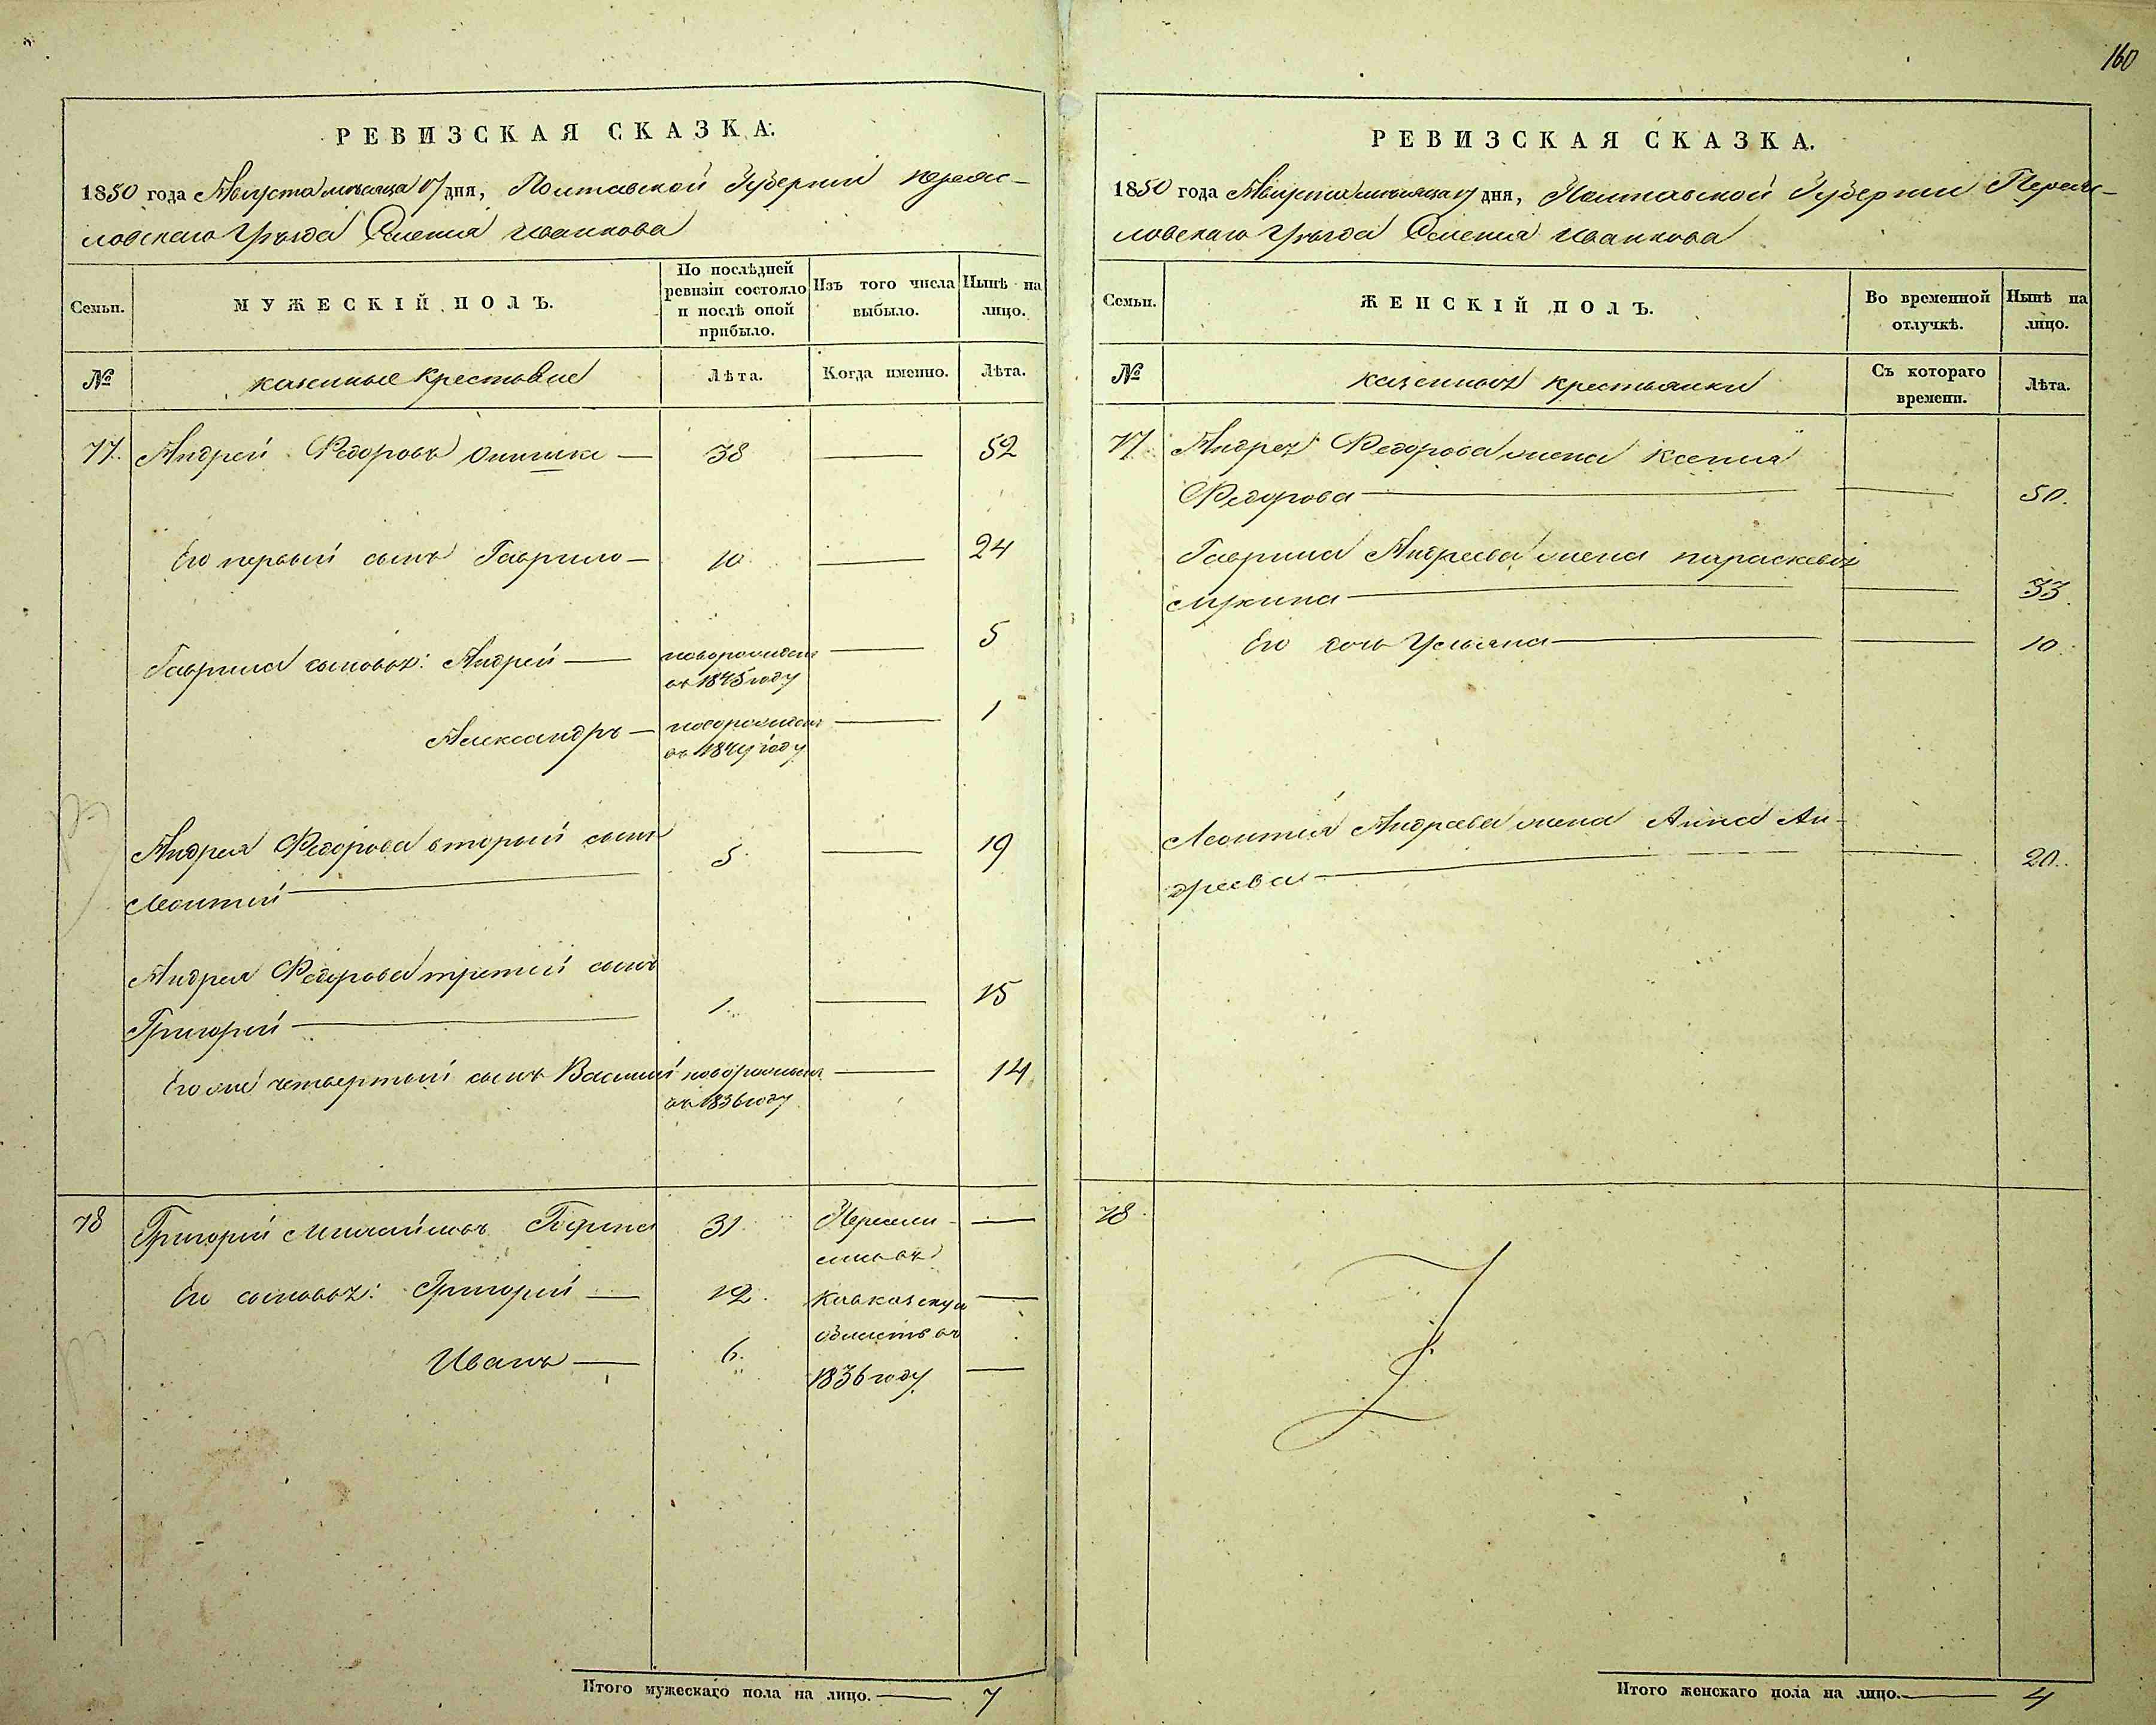 160
РЕВИЗСКАЯ СКАЗКА.
1850 года Августа месяца 17 дня, Полтавской Губернии Переяс-
ловскаго Уезда Селения Иванкова
Семьи.
МУЖЕСКІЙ ПОЛЪ.
По послѣдней
ревизіи состояло
и послѣ оной
прибыло.
Изъ того числа
выбыло.
Нынѣ на
лицо.
№
казенные крестьяне
Лѣта.
Когда именно.
Лѣта.
77. Андрей Федоровъ — 38 — 52
Его первый сынъ Гаврило — 10 — 24
Гаврила сыновья: Андрей — новорожден — 5
въ 1845 году
Александръ — новорожден — 1
въ 1849 году
Андрея Федорова вторый сынъ
5 — 19
Леонтий —
Андрея Федорова третий сынъ
1 — 15
Григорий —
Его же четвертый сынъ Василий новорожден — 14
въ 1836 году
78 Григорий Михайловъ 31 Пересели- —
лись въ
Его сыновья: Григорий — 12. Кавказскую —
область въ
Иванъ — 6. 1836 году —
Итого мужескаго пола на лицо. — 7
РЕВИЗСКАЯ СКАЗКА.
1850 года Августа месяца 17 дня, Полтавской Губернии Переяс-
ловскаго Уезда Селения Иванкова
Семьи.
ЖЕНСКІЙ ПОЛЪ.
Во временной
отлучкѣ.
Нынѣ на
лицо.
№
казенныя крестьянки
Съ котораго
времени.
Лѣта.
77. Андрея Федорова жена Ксения
Федорова — — 50.
Гаврила Андреева жена Параскевия
Лукина — — 33.
Его дочь Ульяна — — 10.
Леонтия Андреева жена Анна Ан-
дреева — — 20.
78.
Итого женскаго пола на лицо. — 4